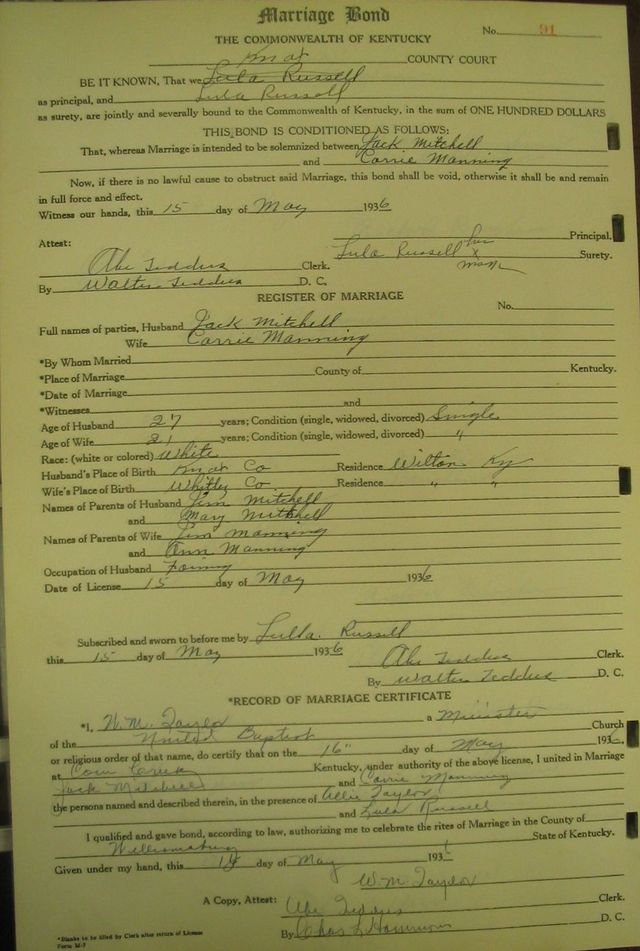 Marriage Bond
No. 91
THE COMMONWEALTH OF KENTUCKY
Knox COUNTY COURT
BE IT KNOWN, That we Lula Russell
as principal, and Lula Russell
as surety, are jointly and severally bound to the Commonwealth of Kentucky, in the sum of ONE HUNDRED DOLLARS
THIS BOND IS CONDITIONED AS FOLLOWS:
That, whereas Marriage is intended to be solemnized between Jack Mitchell
and Carrie Manning
Now, if there is no lawful cause to obstruct said Marriage, this bond shall be void, otherwise it shall be and remain
in full force and effect.
Witness our hands, this 15 day of May 1936
Principal.
Attest: Lula Russell her x mark Surety.
Abe Teddus Clerk.
By Walter Teddus D. C.
REGISTER OF MARRIAGE
No.
Full names of parties, Husband Jack Mitchell
Wife Carrie Manning
*By Whom Married
*Place of Marriage County of Kentucky.
*Date of Marriage
*Witnesses and
Age of Husband 27 years; Condition (single, widowed, divorced) Single
Age of Wife 21 years; Condition (single, widowed, divorced) "
Race: (white or colored) White
Husband's Place of Birth Knox Co Residence Wilton Ky
Wife's Place of Birth Whitley Co. Residence " "
Names of Parents of Husband Jim Mitchell
and Mary Mitchell
Names of Parents of Wife Jim Manning
and Ann Manning
Occupation of Husband
Date of License 15 day of May 1936
Subscribed and sworn to before me by Lulla. Russell
this 15 day of May 1936 Abe Teddus Clerk.
By Walter Teddus D. C.
*RECORD OF MARRIAGE CERTIFICATE
*I, W. M. Taylor a Minister
of the United Baptist Church
or religious order of that name, do certify that on the 16" day of May 1936,
at Kentucky, under authority of the above license, I united in Marriage
Jack Mitchell and Carrie Manning
the persons named and described therein, in the presence of Allie Taylor
and Lula Russell
I qualified and gave bond, according to law, authorizing me to celebrate the rites of Marriage in the County of
Williamsburg State of Kentucky.
Given under my hand, this day of May 193
W. M. Taylor
A Copy, Attest: Abe Teddus Clerk.
By Chas. D. C.
*Blanks to be filled by Clerk after return of License
Form M-7